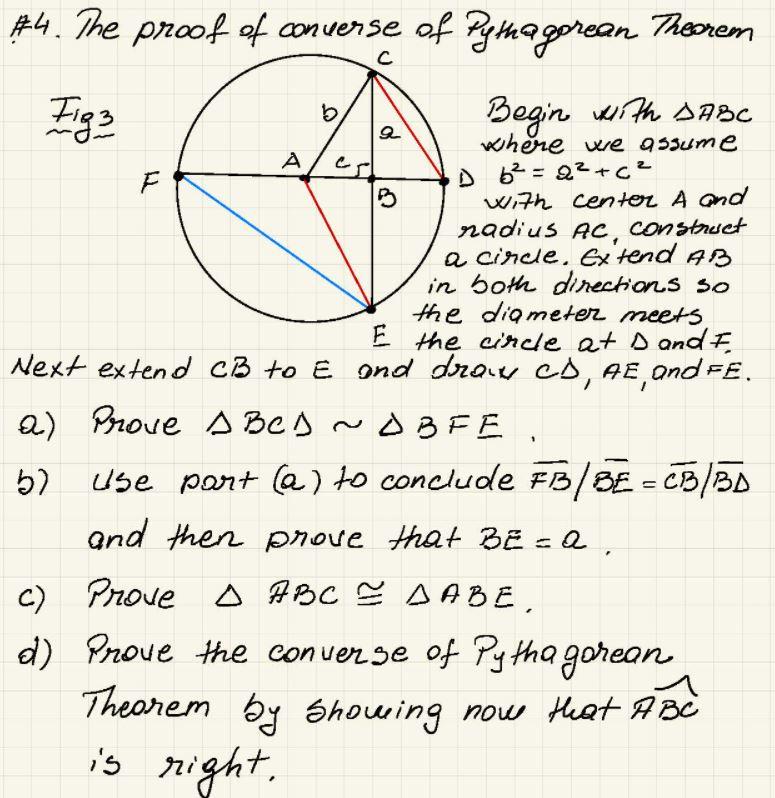 #4. The proof of converse of Pythagorean Theorem
Fig 3
C
b
a
A
c
F
B
D
E
Begin with △ABC
where we assume
b² = a² + c²
with center A and
radius AC, construct
a circle. Extend AB
in both directions so
the diameter meets
the circle at D and F.
Next extend CB to E and draw CD, AE, and FE.
a) Prove △BCD ~ △BFE.
b) Use part (a) to conclude F̅B̅/B̅E̅ = C̅B̅/B̅D̅
and then prove that BE = a.
c) Prove △ ABC ≅ △ABE.
d) Prove the converse of Pythagorean
Theorem by showing now that ABC
is right.